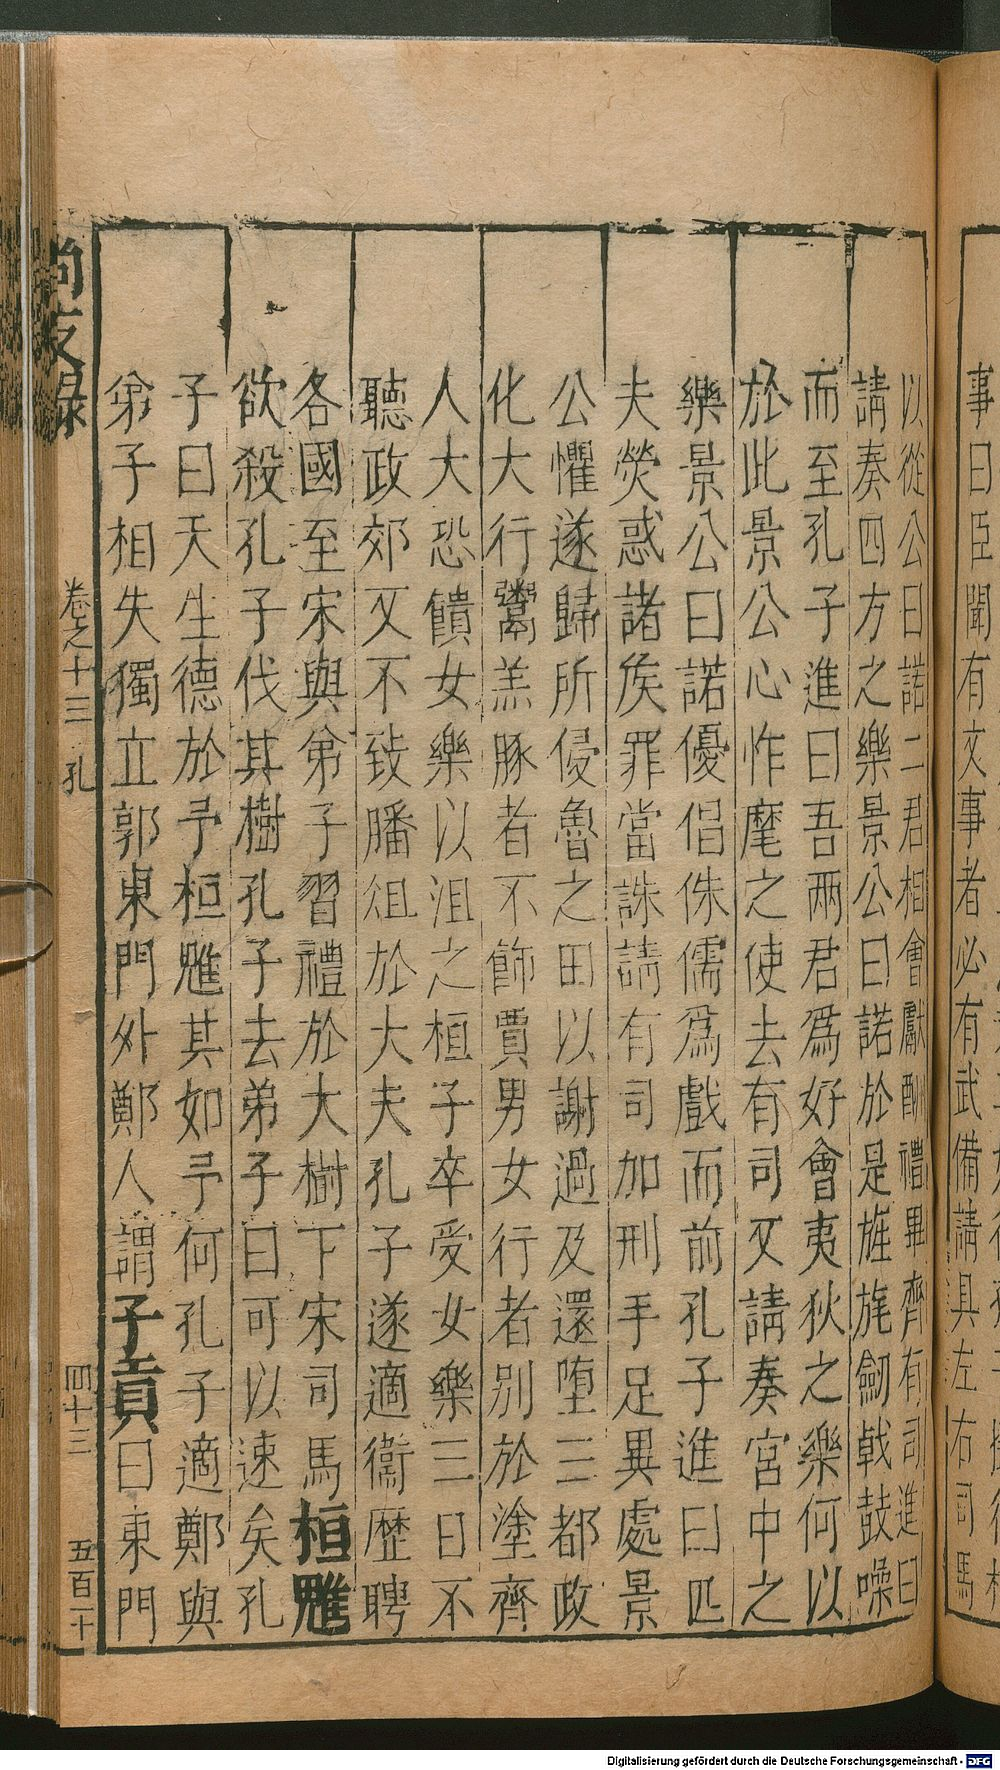 事曰臣聞有文事者必有武備請具左右司馬
以從公曰諾二君相會獻酬禮畢齊有司進曰
請奏四方之樂景公曰諾於是旌旄劒戟鼓噪
而至孔子進曰吾兩君爲好會夷狄之樂何以
於此景公心怍麾之使去有司又請奏宮中之
樂景公曰諾優倡侏儒爲戲而前孔子進曰匹
夫熒惑諸侯罪當誅請有司加刑手足異處景
公懼遂歸所侵魯之田以謝過及還墮三都政
化大行鬻羔豚者不飾賈男女行者別於塗齊
人大恐饋女樂以沮之桓子卒受女樂三日不
聽政郊又不致膰俎於大夫孔子遂適衞歷聘
各國至宋與弟子習禮於大樹下宋司馬桓魋
欲殺孔子伐其樹孔子去弟子曰可以速矣孔
子曰天生德於予桓魋其如予何孔子適鄭與
弟子相失獨立郭東門外鄭人謂子貢曰東門
尚友錄
卷之十三 孔
四十三
五百二十
Digitalisierung gefördert durch die Deutsche Forschungsgemeinschaft - DFG